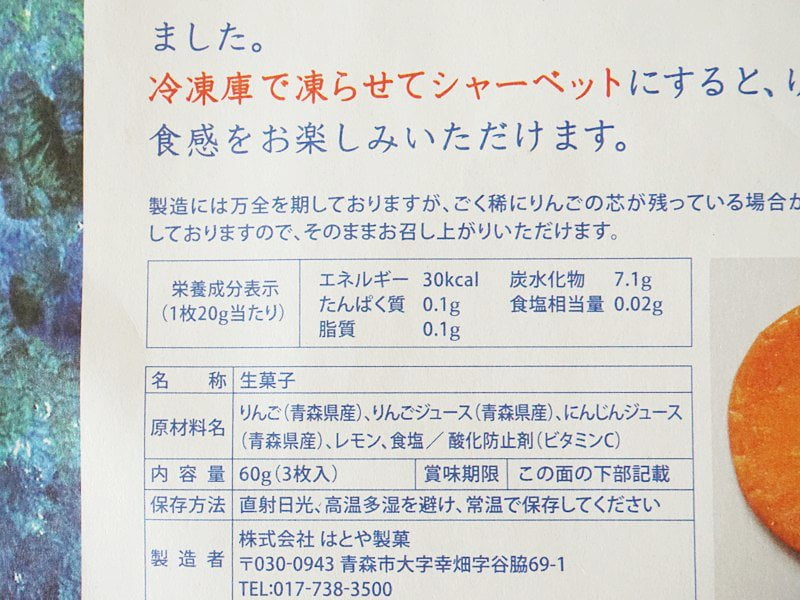 ました。
冷凍庫で凍らせてシャーベットにすると、
食感をお楽しみいただけます。
製造には万全を期しておりますが、ごく稀にりんごの芯が残っている場合が
しておりますので、そのままお召し上がりいただけます。
栄養成分表示
(1枚20g当たり)
エネルギー 30kcal 炭水化物 7.1g
たんぱく質 0.1g 食塩相当量 0.02g
脂質 0.1g
名 称 生菓子
原材料名 りんご(青森県産)、りんごジュース(青森県産)、にんじんジュース
(青森県産)、レモン、食塩/酸化防止剤(ビタミンC)
内容量 60g(3枚入) 賞味期限 この面の下部記載
保存方法 直射日光、高温多湿を避け、常温で保存してください
製造者 株式会社 はとや製菓
〒030-0943 青森市大字幸畑字谷脇69-1
TEL:017-738-3500